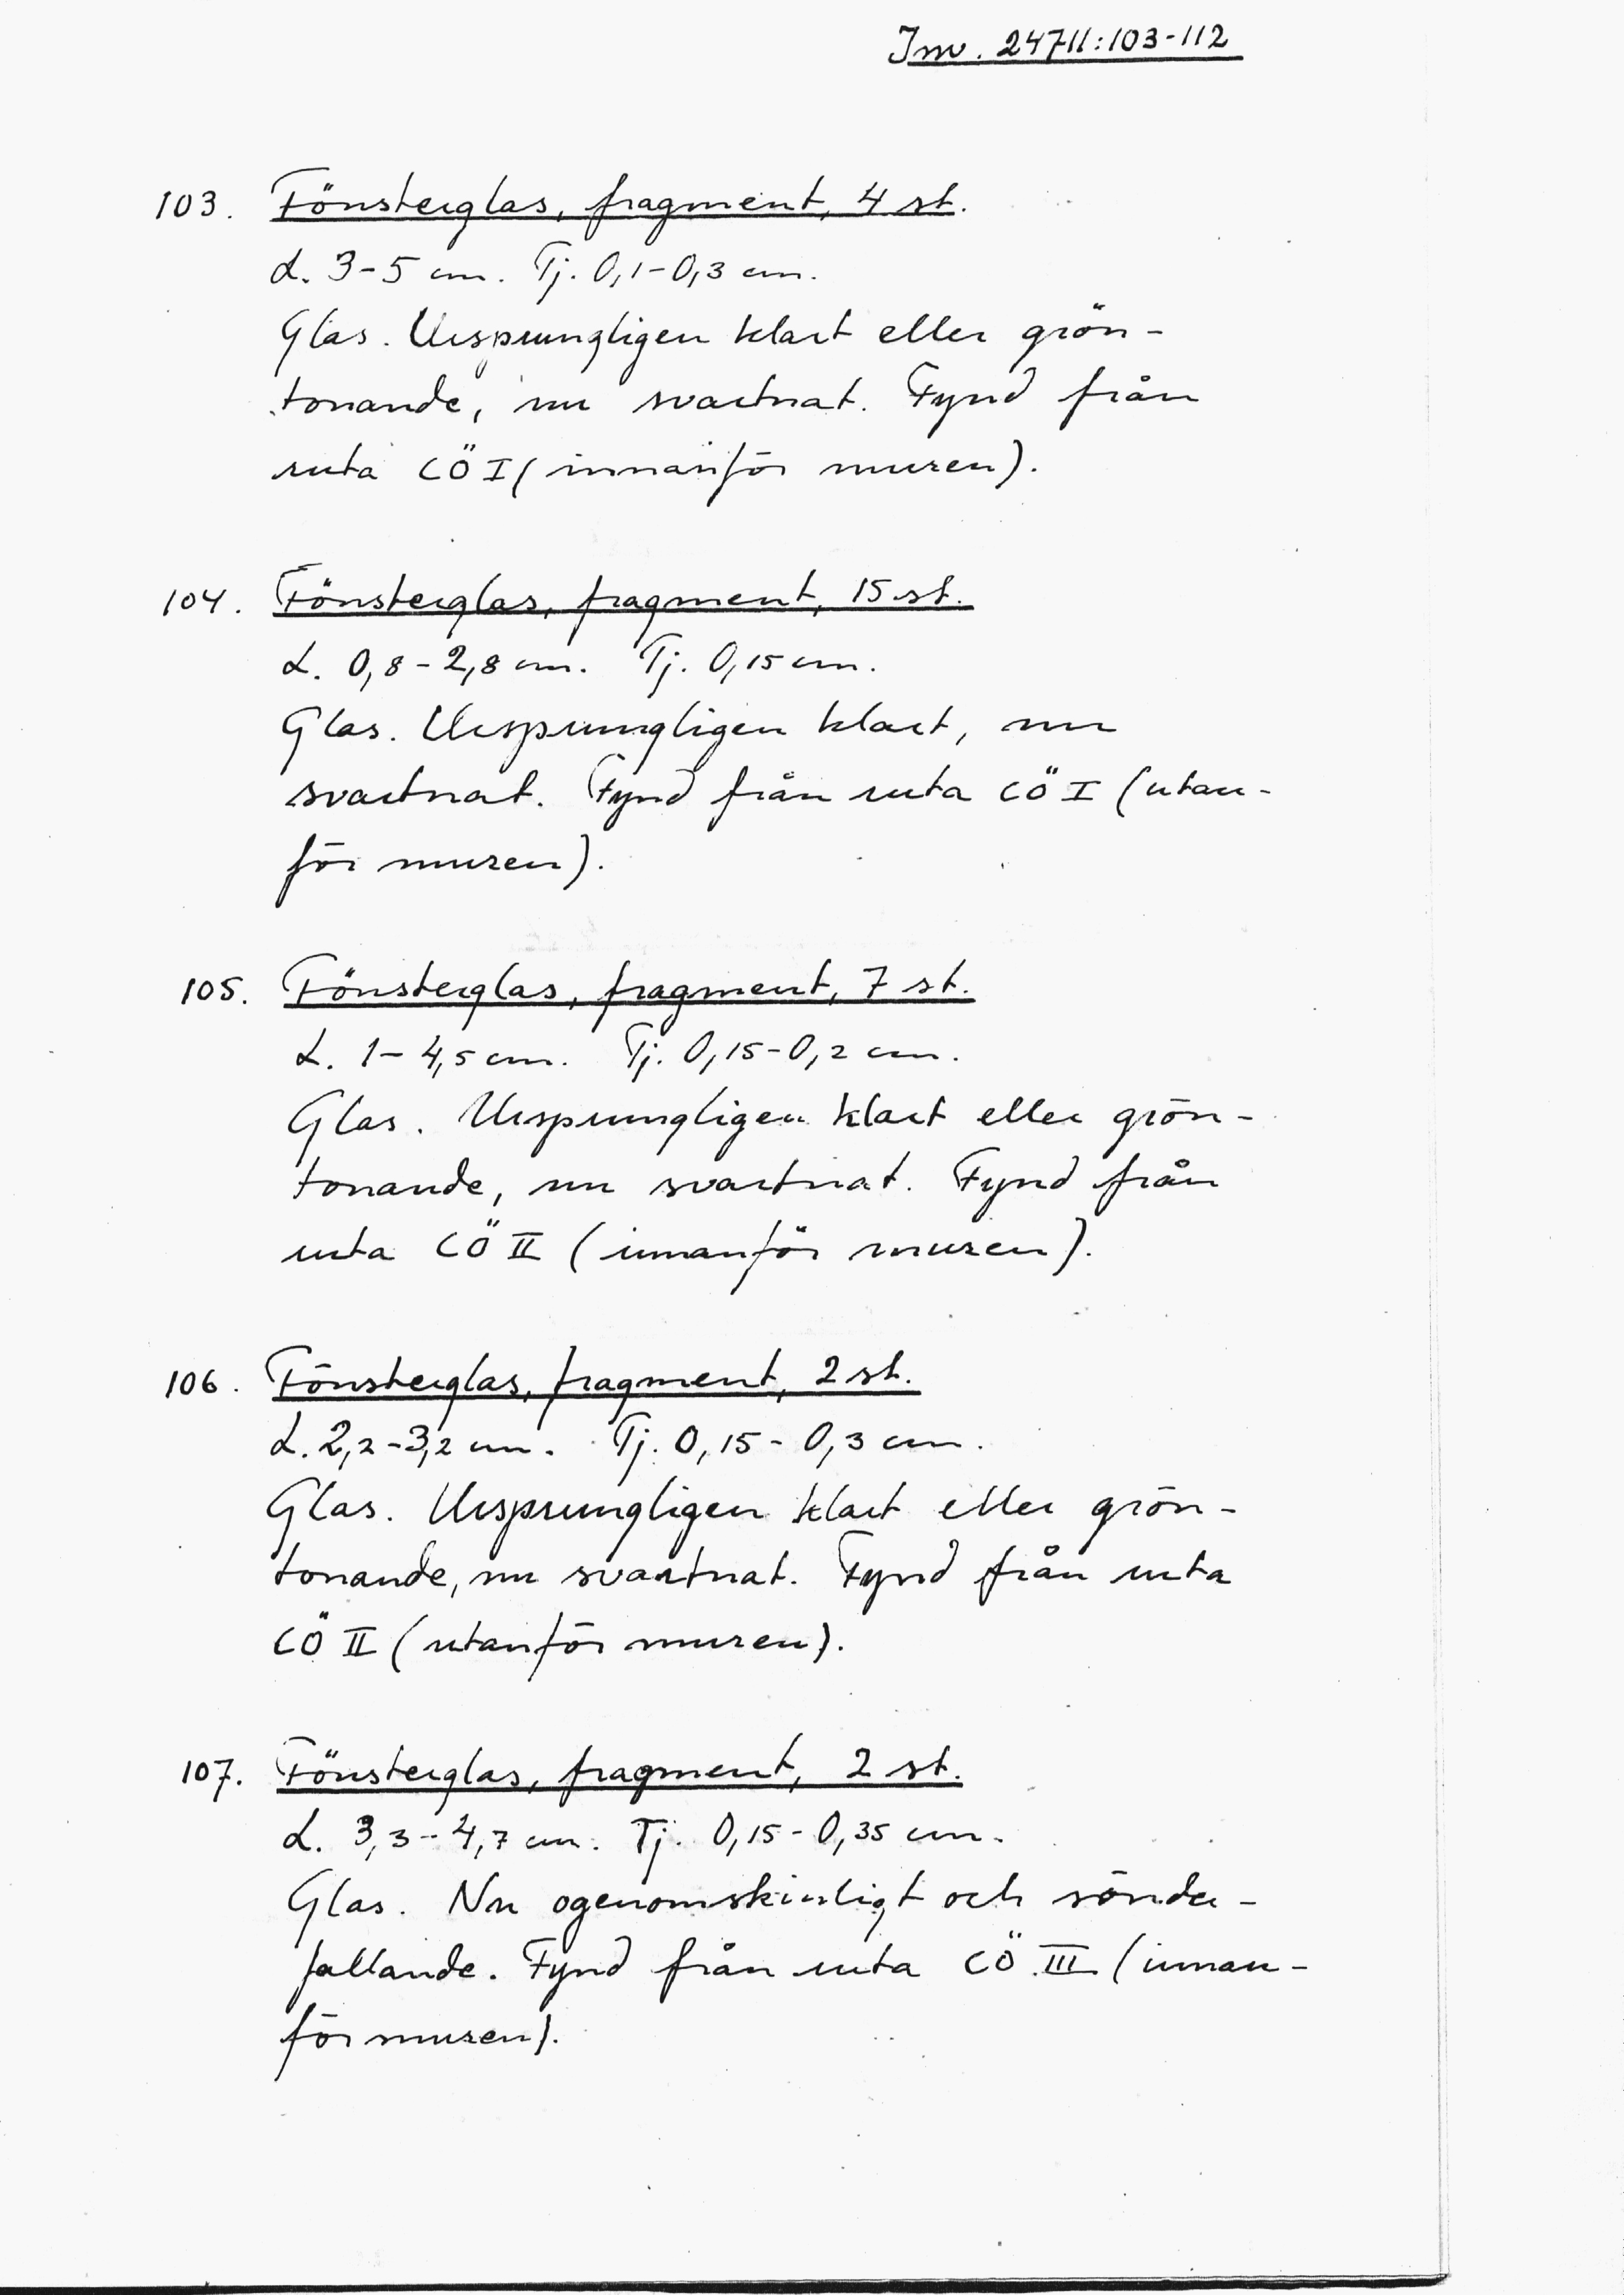 Inv. 24711:103-112
103. Fönsterglas, fragment, 4 st.
L. 3-5 cm. Tj. 0,1-0,3 cm.
Glas. Ursprungligen klart eller grön-
tonande, nu svartnat. Fynd från
ruta CÖ I (innanför muren).
104. Fönsterglas, fragment, 15 st.
L. 0,8-2,8 cm. Tj. 0,15 cm.
Glas. Ursprungligen klart, nu
svartnat. Fynd från ruta CÖ I (utan-
för muren).
105. Fönsterglas, fragment, 7 st.
L. 1-4,5 cm. Tj. 0,15-0,2 cm.
Glas. Ursprungligen klart eller grön-
tonande, nu svartnat. Fynd från
ruta CÖ II (innanför muren).
106. Fönsterglas, fragment, 2 st.
L. 2,2-3,2 cm. Tj. 0,15-0,3 cm.
Glas. Ursprungligen klart eller grön-
tonande, nu svartnat. Fynd från ruta
CÖ II (utanför muren).
107. Fönsterglas, fragment, 2 st.
L. 3,3-4,7 cm. Tj. 0,15-0,35 cm.
Glas. Nu ogenomskinligt och sönder-
fallande. Fynd från ruta CÖ III (innan-
för muren).